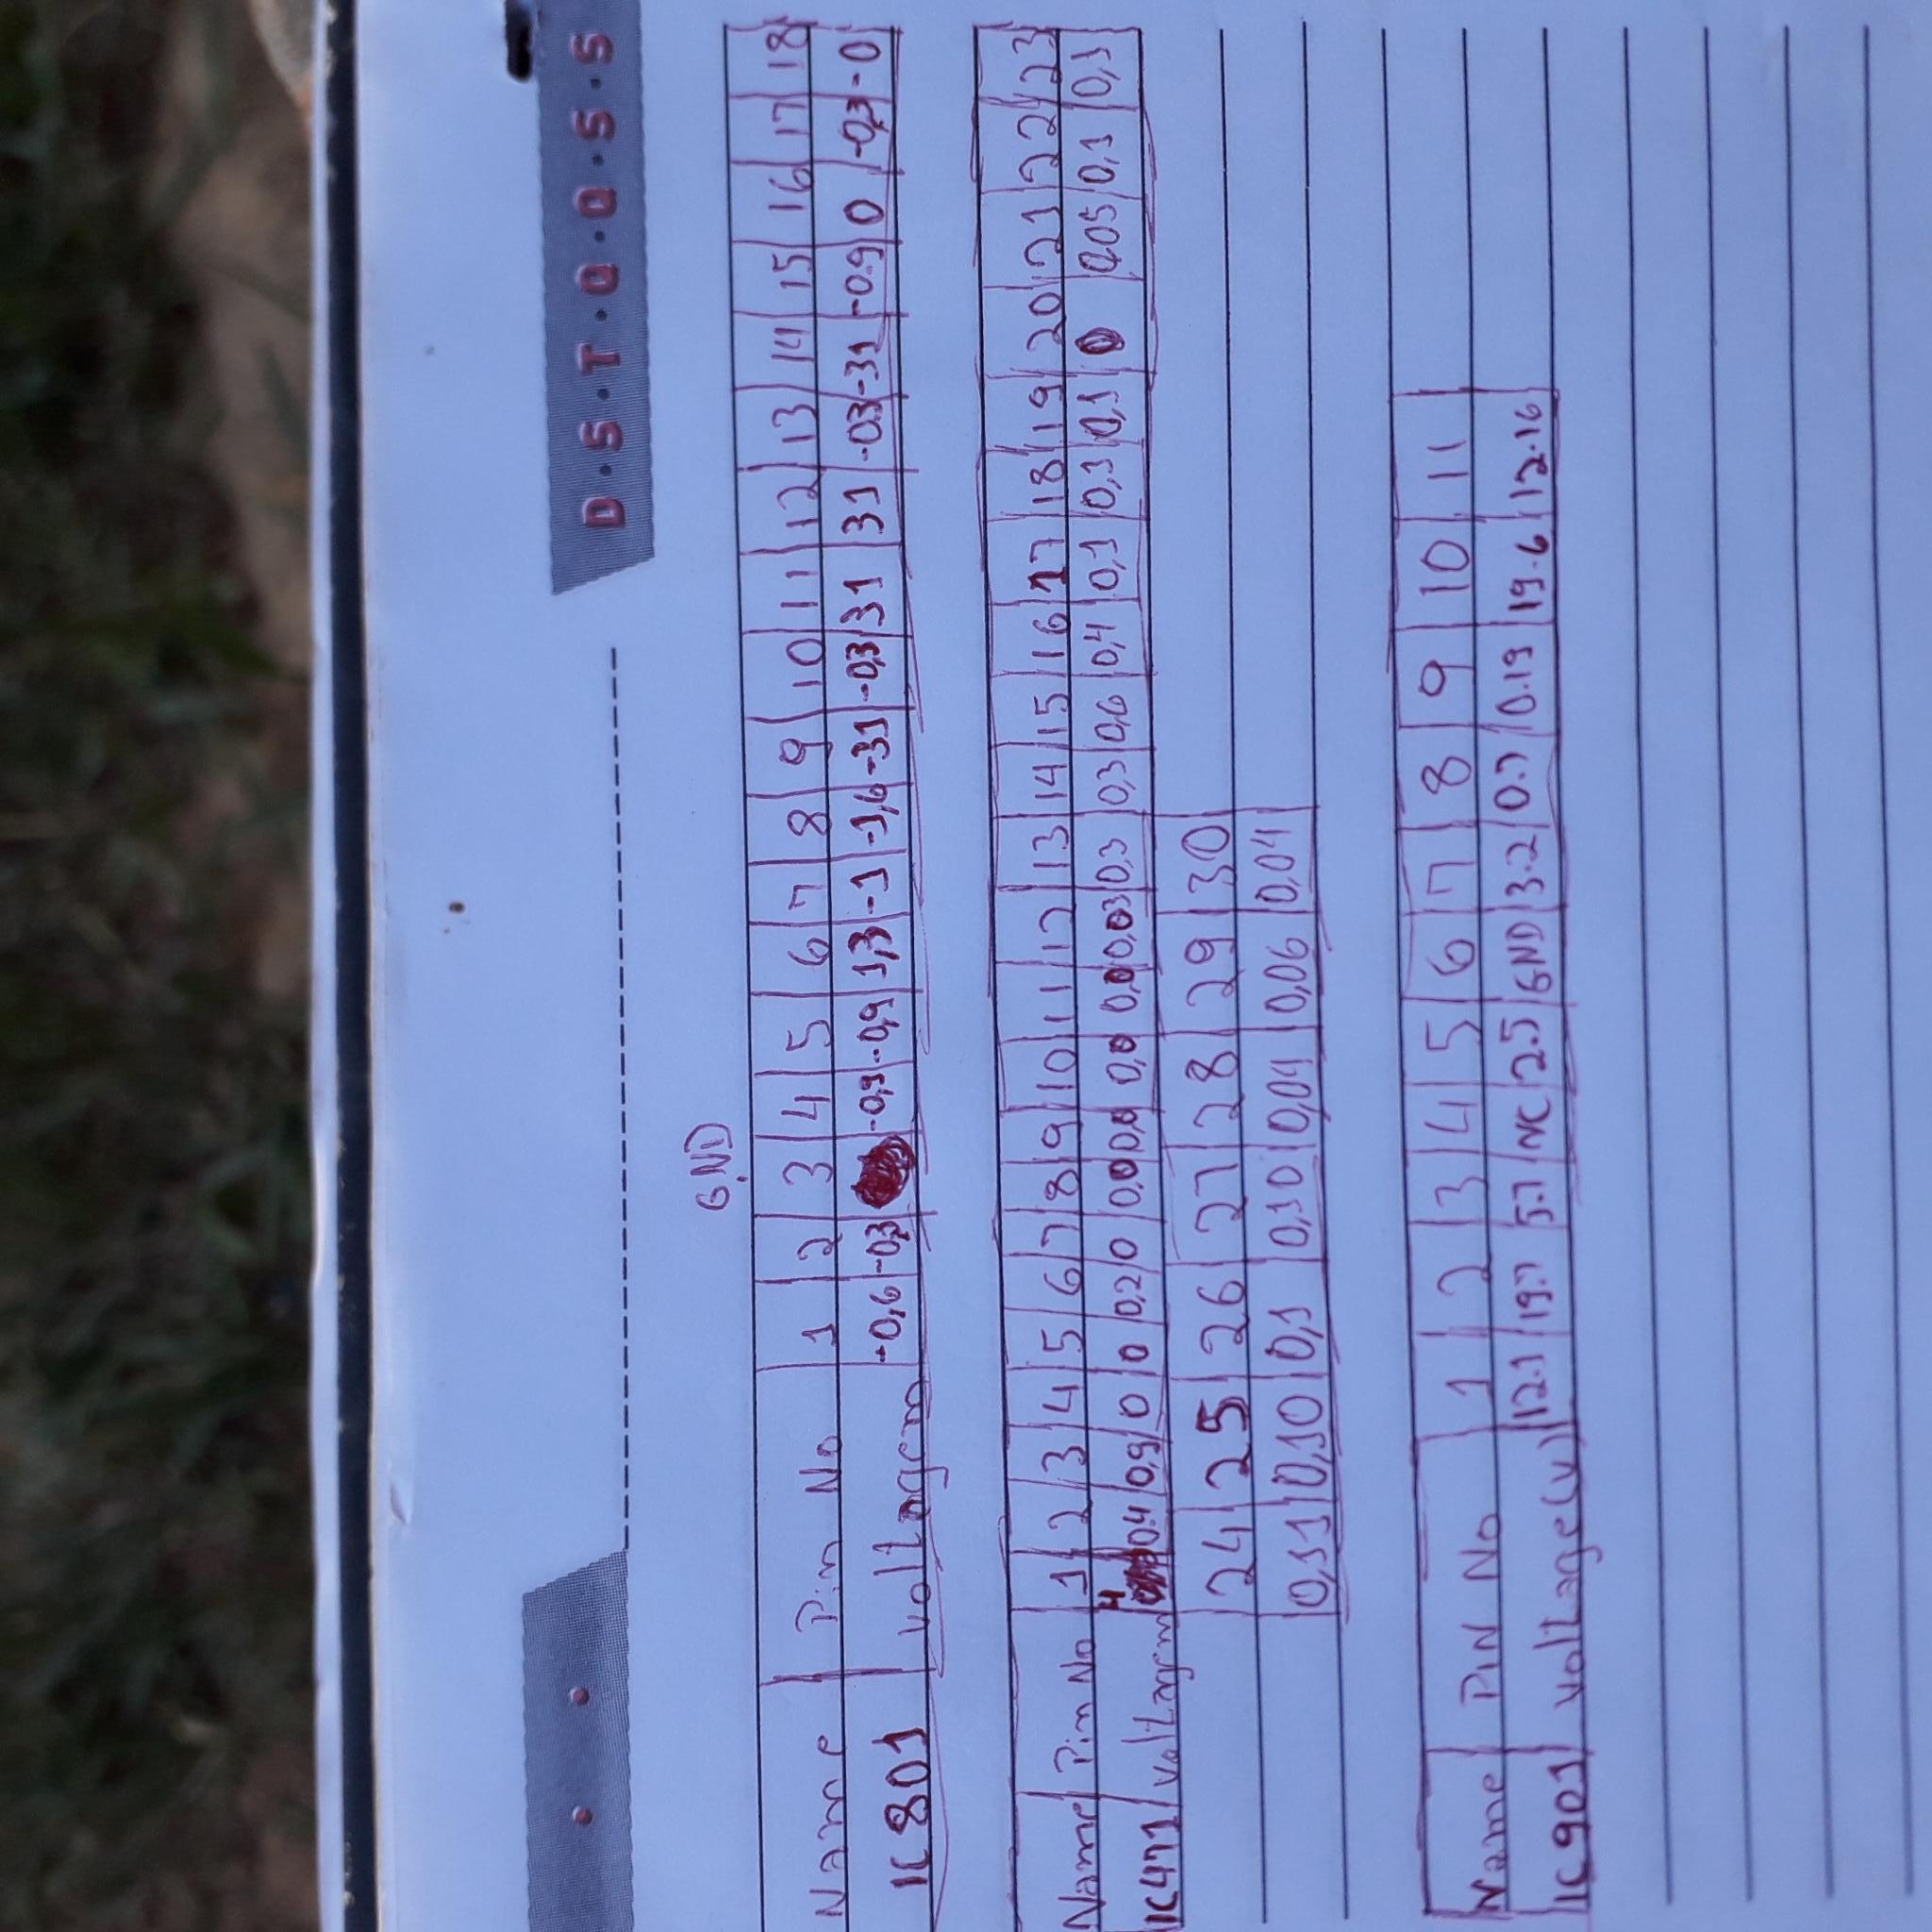 D•S•T•Q•Q•S•S
GND
Name Pin No 1 2 3 4 5 6 7 8 9 10 11 12 13 14 15 16 17 18
IC801 Voltagem +0,6 -0,3 -0,9 -0,9 1,3 -1 -1,6 -31 -0,3 31 31 -0.3 -31 -0.9 0 -0,3 -0
Name Pin No 1 2 3 4 5 6 7 8 9 10 11 12 13 14 15 16 17 18 19 20 21 22 23
IC471 Voltagem 4 0.4 0,9 0 0 0,2 0 0,0 0,0 0,0 0,0 0,03 0,3 0,3 0,6 0,4 0,1 0,1 0,1 0 0,05 0,1 0,1
24 25 26 27 28 29 30
0,11 0,10 0,1 0,10 0,04 0,06 0,04
Name PIN No 1 2 3 4 5 6 7 8 9 10 11
IC901 Voltage(V) 12.1 19.7 5.7 NC 2.5 GND 3.2 0.7 0.19 19.6 12.16